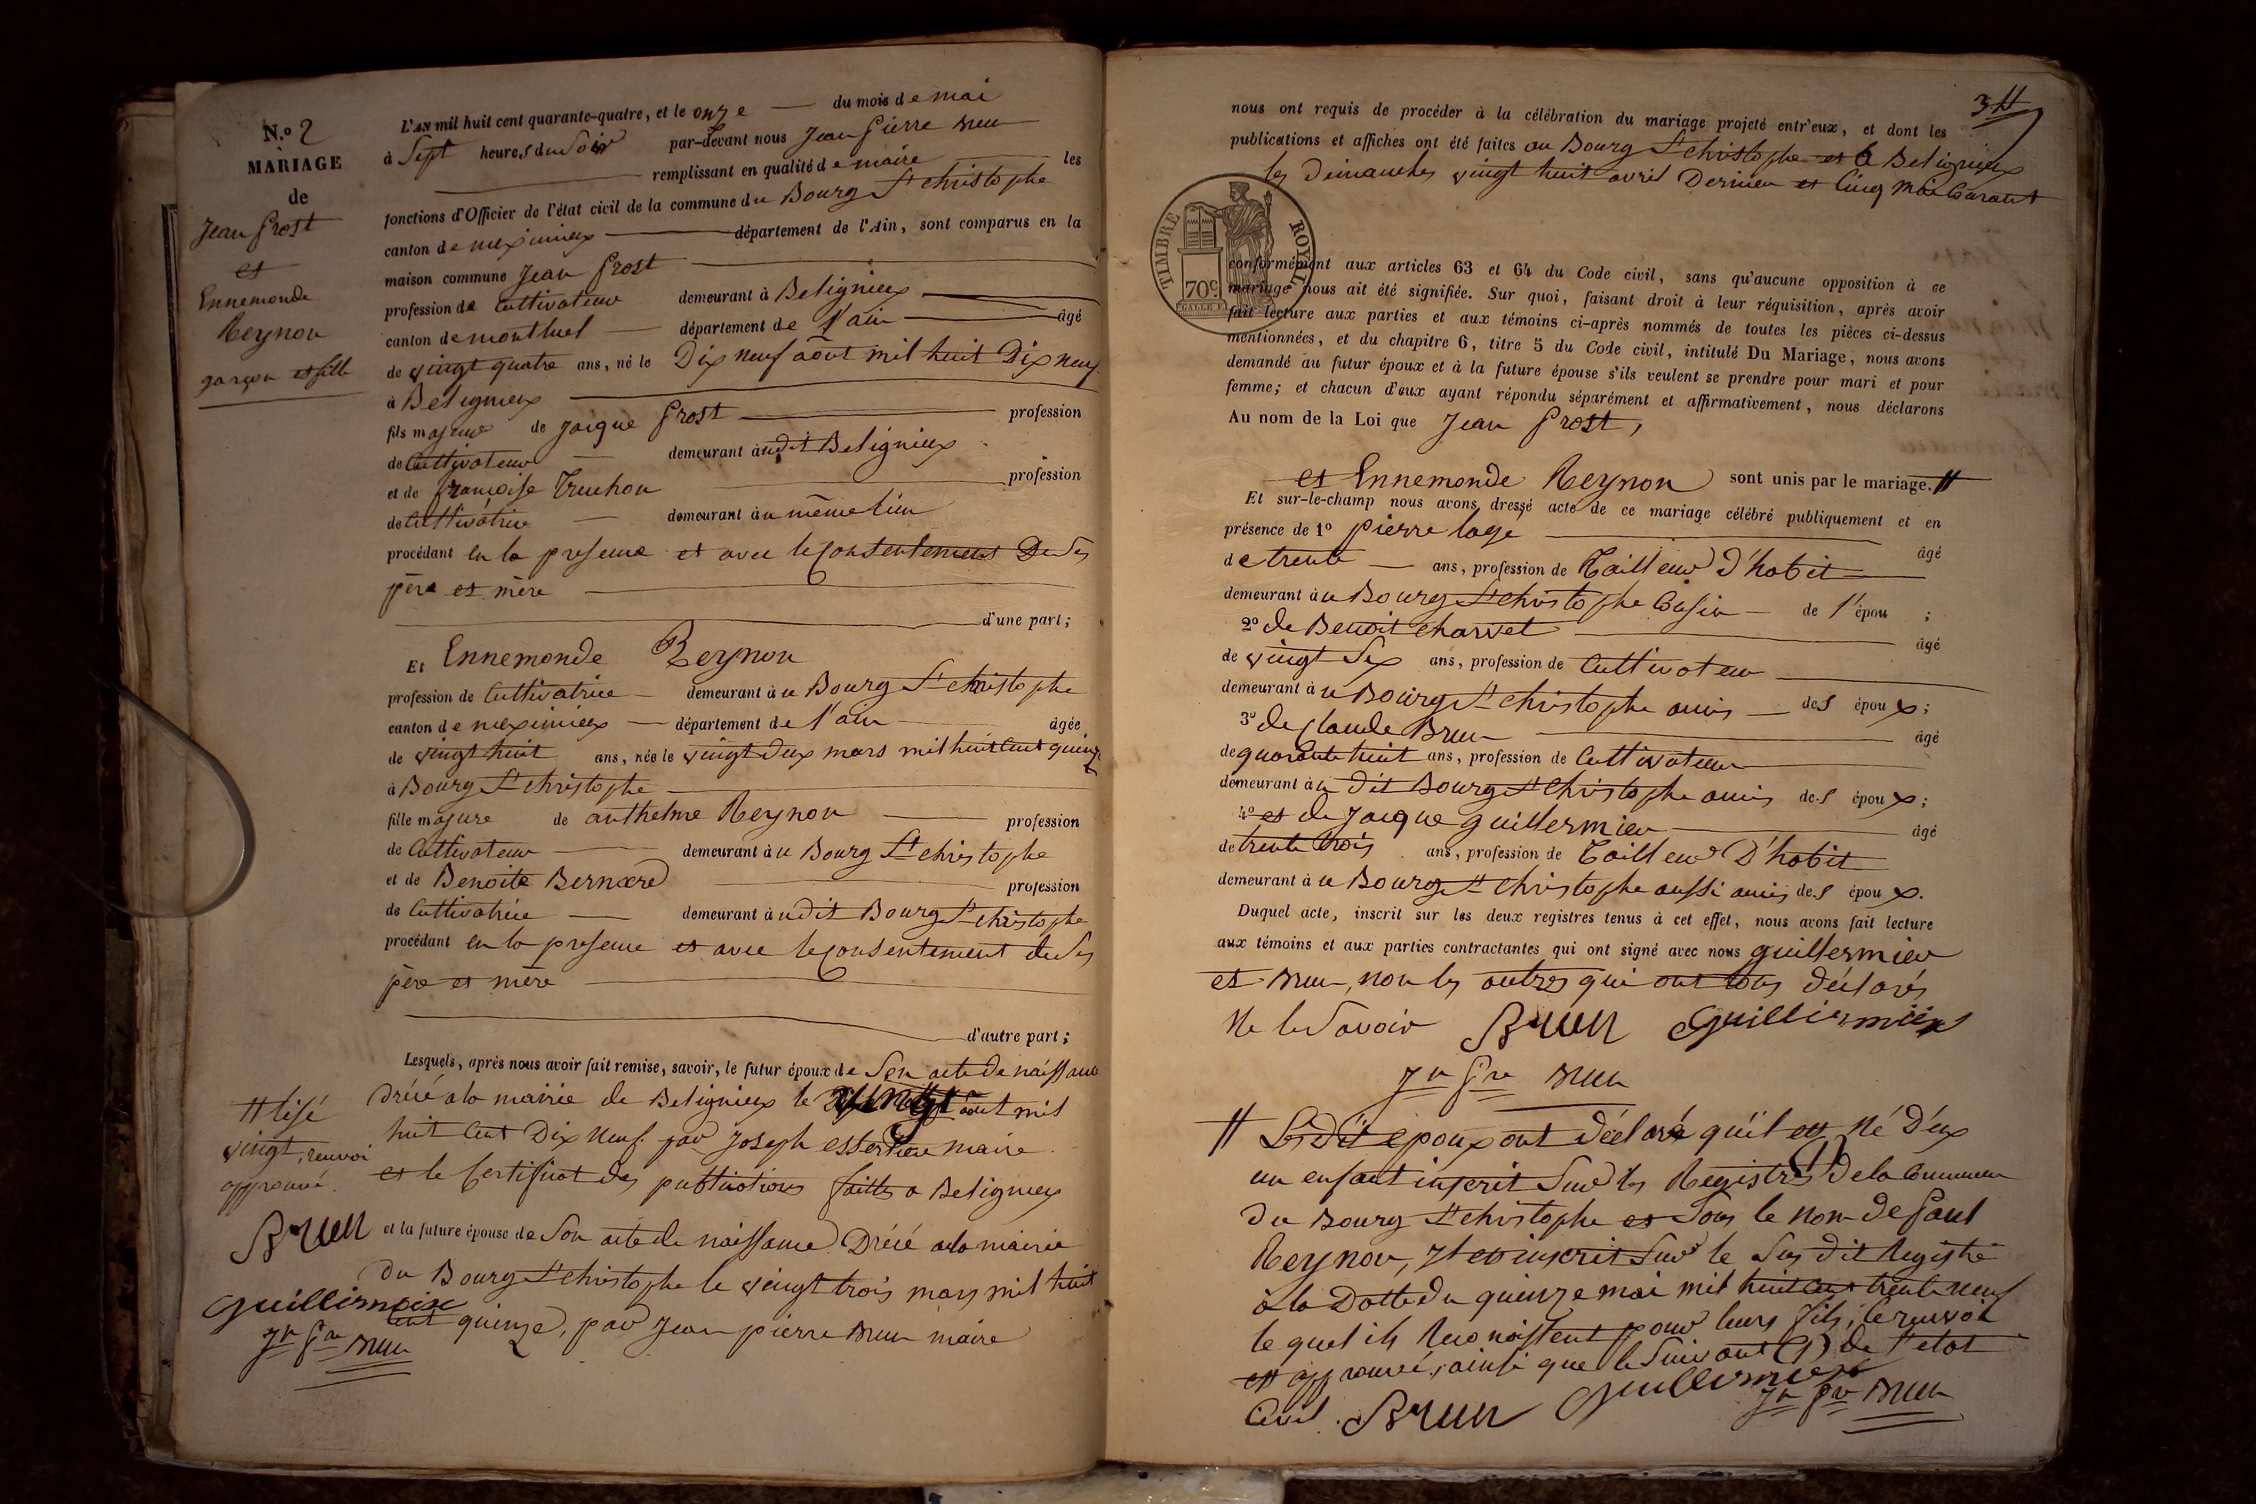 N.º 2
MARIAGE
de
Jean Prost
et
Ennemonde
Reynon
garçon et fille
L'AN mil huit cent quarante-quatre, et le onze du mois de mai
à Sept heures du Soir par-devant nous Jean Pierre Brun
remplissant en qualité de maire les
fonctions d'Officier de l'état civil de la commune du Bourg St christophe
canton de meximieux département de l'Ain, sont comparus en la
maison commune Jean Prost
profession de Cultivateur demeurant à Belignieux
canton de montluel département de l'ain âgé
de vingt quatre ans, né le Dix neuf août mil huit Dix neuf
à Beligneux
fils majeur de Jacque Prost profession
de Cultivateur demeurant audit Belignieux
et de françoise Truchon profession
de Cultivatrice demeurant au même lieu
procédant en la presence et avec le Consentement De Ses
père et mère
d'une part;
Et Ennemonde Reynon
profession de Cultivatrice demeurant à u Bourg St christophe
canton de meximieux département de l'ain âgée
de vingt huit ans, née le vingt Deux mars mil huit Cent quinze
à Bourg St christophe
fille majure de anthelme Reynon profession
de Cultivateur demeurant à u Bourg St christophe
et de Benoite Bernard profession
de Cultivatrice demeurant à udit Bourg St christophe
procédant en la presence et avec le Consentement de Ses
père et mère
d'autre part;
Lesquels, après nous avoir fait remise, savoir, le futur époux de Son acte de naissance
Drécé a la mairie de Beligneux le vingt août mil
huit Cent Dix Neuf par Joseph maire
et le Certificat des publications faittes a Beligneux
et la future épouse de Son acte de naissance Drécé a la mairie
du Bourg St christophe le vingt trois mars mil huit
Cent quinze, par Jean pierre Brun maire
# lisé
vingt, renvoi
approuvé.
Brun
Guillermier
Jn Pre Brun
3
nous ont requis de procéder à la célébration du mariage projeté entr'eux, et dont les
publications et affiches ont été faites au Bourg St christophe et a Belignieux
les Dimanches vingt huit avril Dernier et Cinq mai Courant
TIMBRE ROYAL
70c
conformément aux articles 63 et 64 du Code civil, sans qu'aucune opposition à ce
mariage nous ait été signifiée. Sur quoi, faisant droit à leur réquisition, après avoir
fait lecture aux parties et aux témoins ci-après nommés de toutes les pièces ci-dessus
mentionnées, et du chapitre 6, titre 5 du Code civil, intitulé Du Mariage, nous avons
demandé au futur époux et à la future épouse s'ils veulent se prendre pour mari et pour
femme; et chacun d'eux ayant répondu séparément et affirmativement, nous déclarons
Au nom de la Loi que Jean Prost,
et Ennemonde Reynon sont unis par le mariage. #
Et sur-le-champ nous avons dressé acte de ce mariage célébré publiquement et en
présence de 1º pierre lagé âgé
de trente ans, profession de Tailleur D'habit
demeurant à u Bourg St christophe Cousin de l'épou ;
2º de Benoit charvet âgé
de vingt Six ans, profession de Cultivateur
demeurant à u Bourg St christophe amis des époux;
3º de Claude Brun âgé
de quarante huit ans, profession de Cultivateur
demeurant à u dit Bourg St christophe amis des époux;
4º et de Jacque guillermier âgé
de trente trois ans, profession de Tailleur D'habit
demeurant à u Bourg St christophe aussi amis des époux.
Duquel acte, inscrit sur les deux registres tenus à cet effet, nous avons fait lecture
aux témoins et aux parties contractantes qui ont signé avec nous guillermier
et Brun, non les autres qui ont tous déclarés
Ne le Savoir Brun Guilliermier
Jn Pre Brun
# Les Dit epoux ont déclaré qu'il est Né D'eux
un enfant inscrit Sur les Registres (1) de la Commune
du Bourg St christophe et Sous le nom de Paul
Reynon, inscrit Sur le Sus dit Registre
à la Datte du quinze mai mil huit cent trente neuf
le quel ils Reconaissent pour leurs fils, le renvoi
est approuvé, ainsi que le Suivant (1) de l'etat
Civil. Brun Guilliermier
Jn Pre Brun